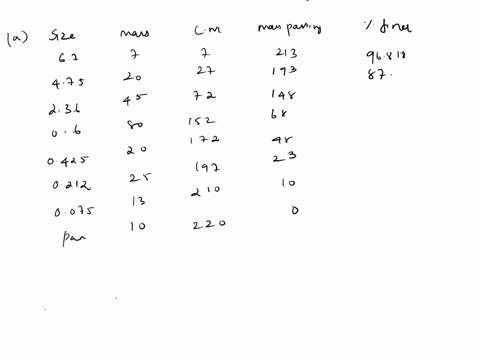 (a) Size mass C.M mass passing % finer
6.3 7 7 213 96.818
4.75 20 27 193 87.
2.36 45 72 148
0.6 80 152 68
0.425 20 172 48
0.212 25 197 23
0.075 13 210 10
Pan 10 220 0